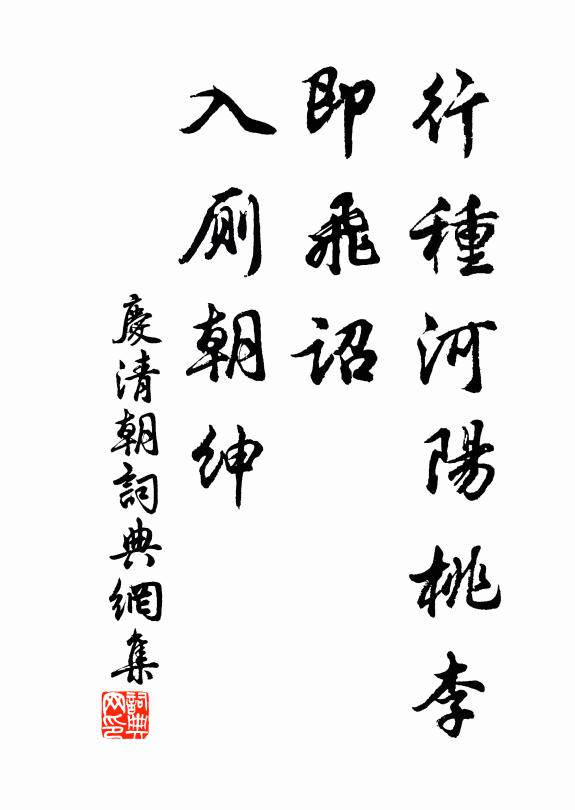 行種河陽桃李
即飛詔
入廁朝紳
慶清朝詞典網集
詞典网印